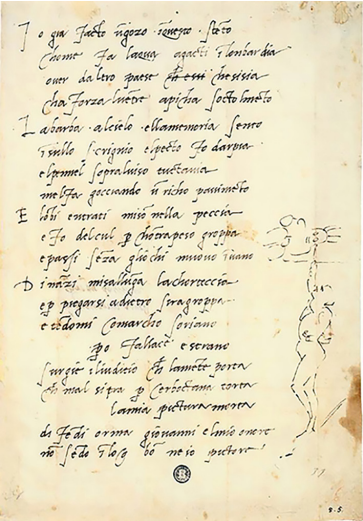 I o gia facto ũ gozo ĩ questo stẽto
chome fa lacqua agacti ĩ lombardia
over daltro paese che essi che sisia
cha forza luẽtre apicha socto lmẽto
L a barba alcielo ellamemoria sento
ĩ sullo scrignio elpecto fo darpia
elpennel sopraluiso tuctavia
melfa gocciando ũ richo pavimẽto
E lõbi entrati miso nella peccia
e fo delcul p chotrapeso groppa
e passi sẽza gliochi muovo ĩvano
D inãzi misallũga lachorteccia
e p piegarsi adietro siragroppa
e tẽdomi comarcho soriano
po fallace e strano
surgie iliudicio ch lamẽte porta
ch mal sitra p cerboctana torta
lamia pictura morta
di fedi orma giovanni elmio onore
nõ sẽdo ĩ loco bõ ne io pictore